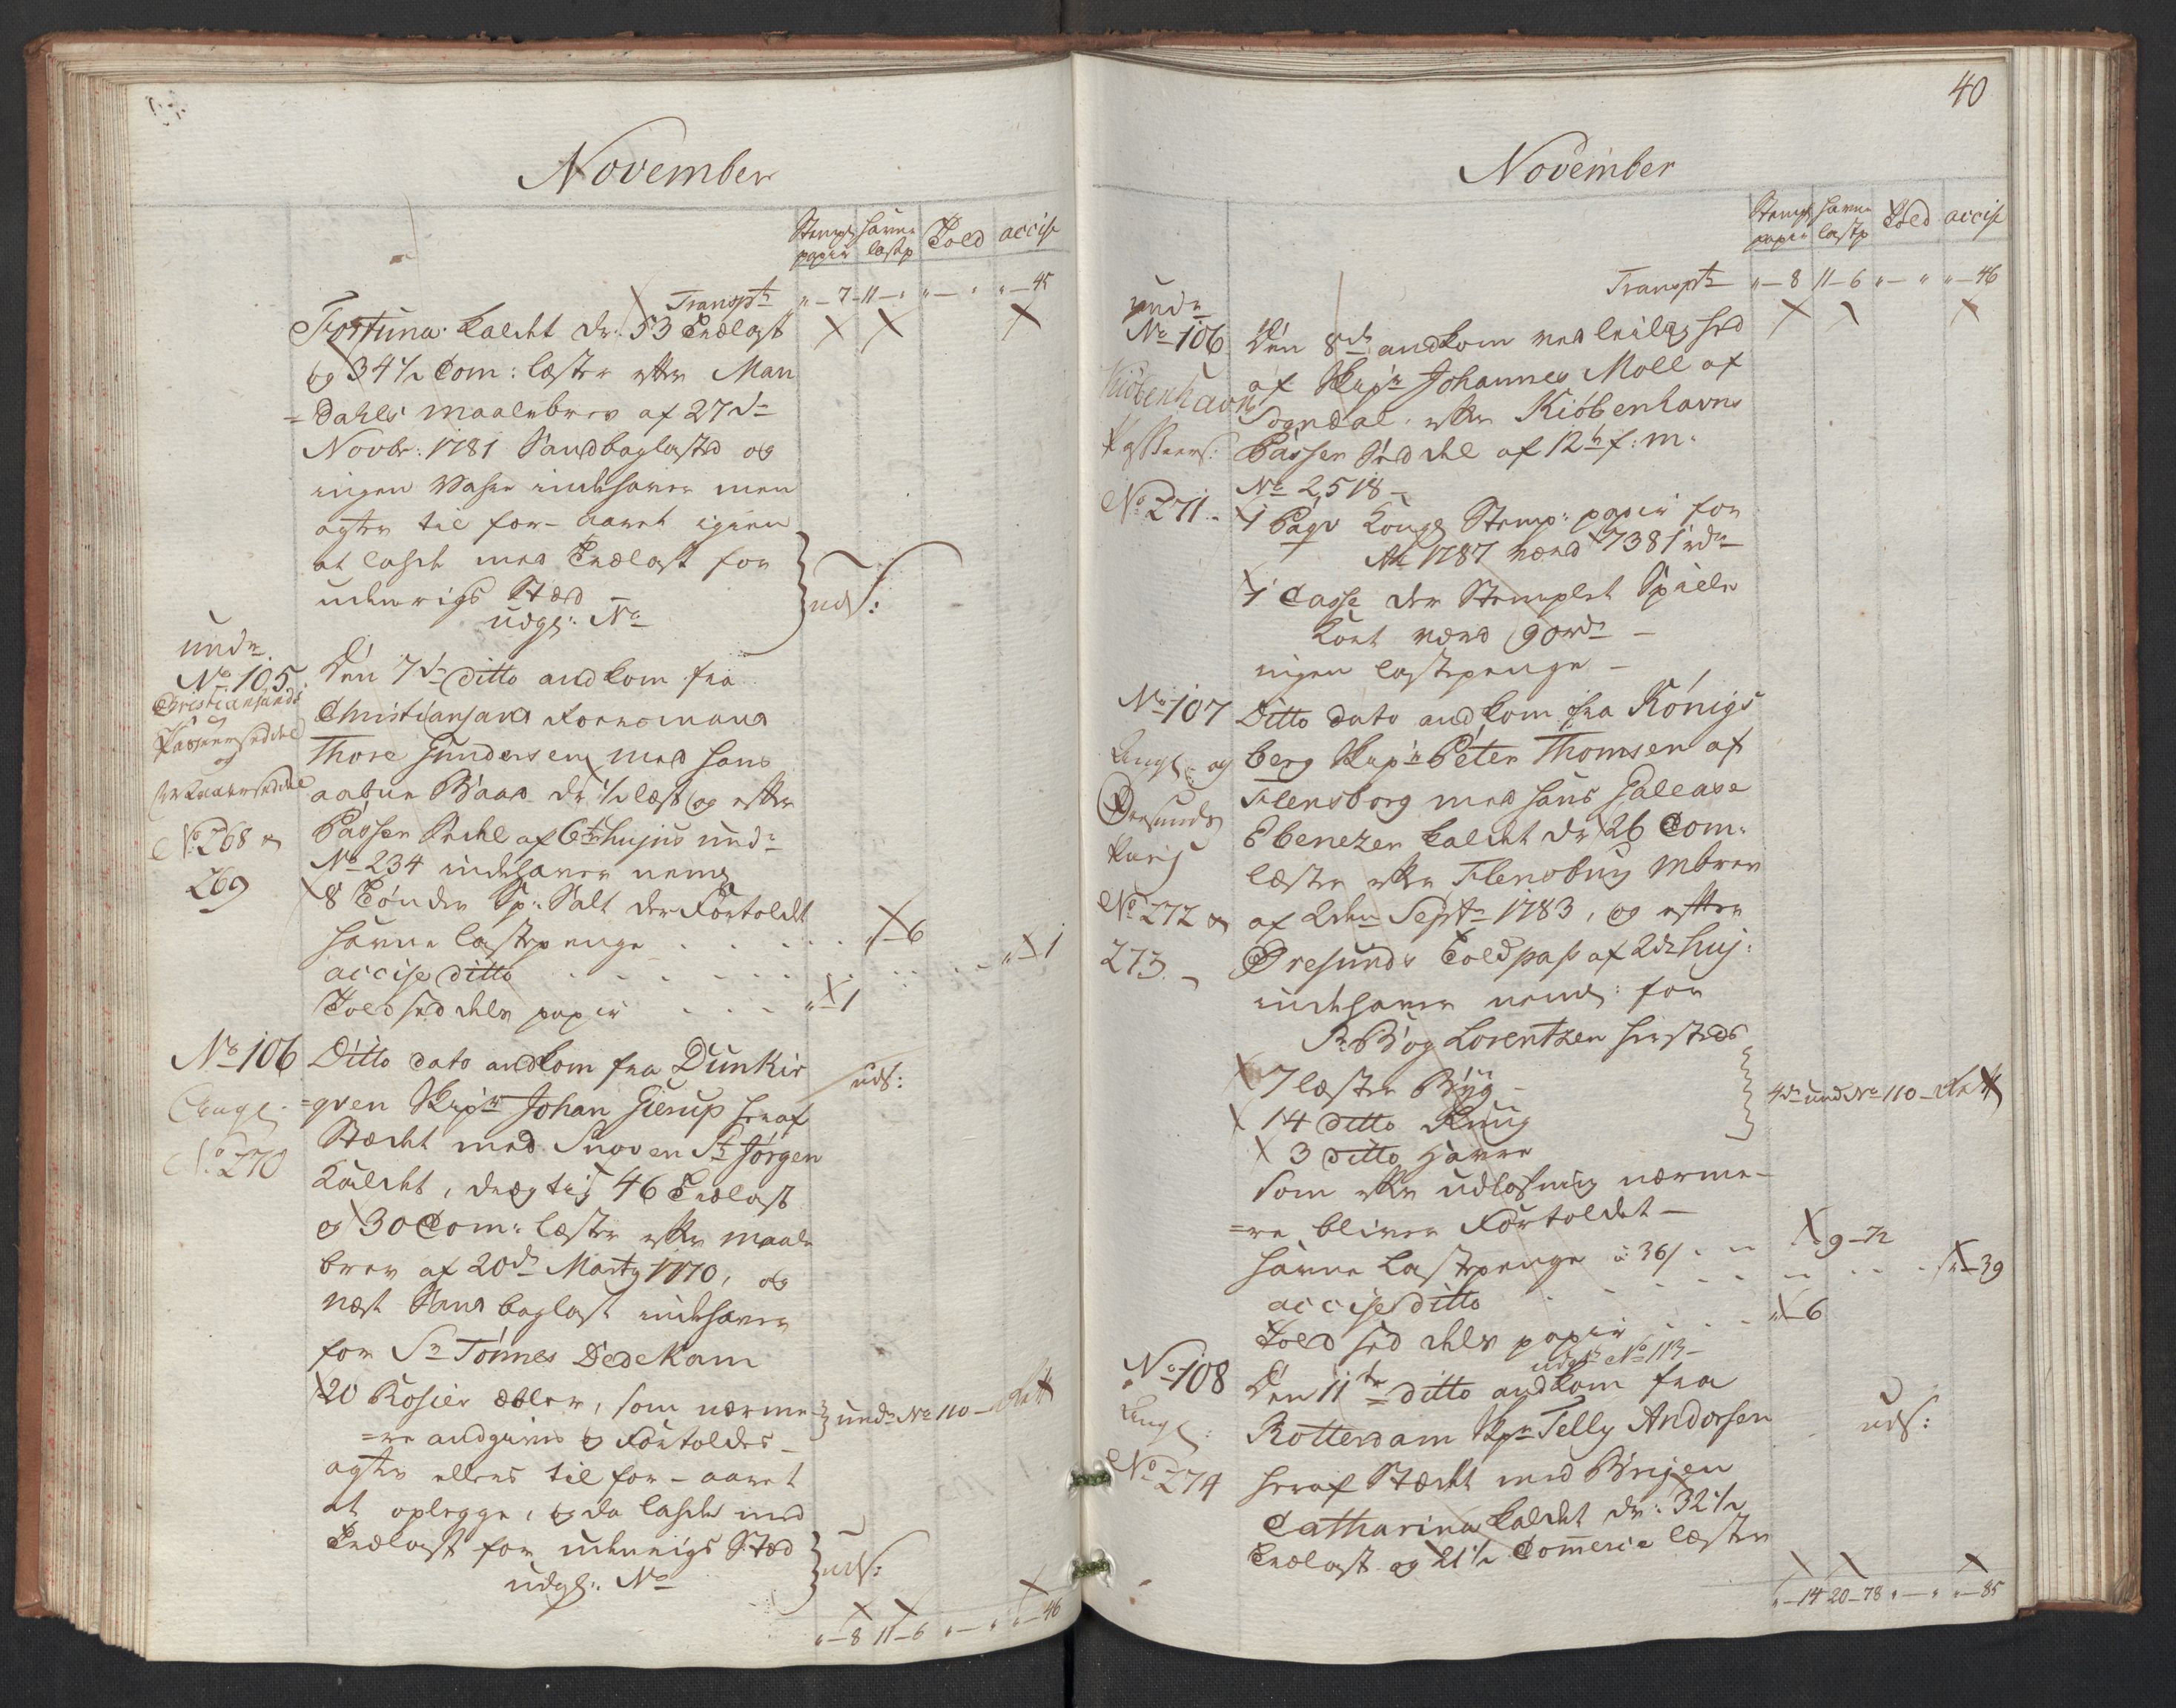 November
Stempl papir havne lastp Told accise
Transpt „—7 11—„ „—„ „—45
Fortuna kaldet dr: 53 Trælast
og 34 1/2 Com: læster efter Man
=dahls maalebrev af 27d
Novbr: 1781 Sandbaglasted og
ingen Vahre indehaver men
agter til for-aaret igien
at lahde med Trælast for
udenrigs Stæd
udgl: No
uds:
undr
No 105
Christiansands
Passeerseddel
og
No 268 &
269
Den 7d ditto andkom fra
Christiansand
Thore Gundersen med hans
aabne Baad dr 1/2 læst og efter
Passer Sedel af 6te hujus und:
No 234 indehaver neml
8 Tønder Sp: Salt der Fortoldt
havne lastepenge „—6
accise ditto „—1
Toldseddels papir „—1
No 106
Angl:
No 270
Ditto dato andkom fra Dunkir
=qven Skipr Johan Gierup her af
Stædet med Snoven St Jørgen
kaldet, drægtig 46 Trælast
og 30 Com: læster efter maale
brev af 20d Marty 1770, og
næst Sand baglast indehaver
for Sr Tönnes Dedekam
20 Kosier æbler, som nærme
=re andgives og Fortoldes
und: No 110
agter ellers til for-aaret
at oplegge, og da lahde med
Trælast for udenrigs Stæd
udgl: No
uds:
„—8 11—6 „—„ „—46
40
November
Stempl papir havne lastp Told accise
Transpt „—8 11—6 „—„ „—46
undr
No 106
Kiöbenhavns
Passeers:
No 271
Den 8d andkom med leilighed
af Skipr Johannes Moll af
Sogndal efter Kiöbenhavns
Passer Seddel af 12t f: m:
No 2518
1 Paqv Kongl Stemp: papir for
Ao 1787 værd 7381 rd
1 Casse der Stemplet Spille
Kort værd 90 rd
ingen lastepenge
No 107
Angl og
Øresunds
No 272 &
273
Ditto dato andkom fra Königs
berg Skipr Peter Thomsen af
Flensborg med hans Galease
Ebenezer kaldet dr 26 Com:
læster efter Flensburg mbrev
af 2den Septr 1783, og efter
Øresunds Toldpass af 2d huj:
indehaver neml: for
Sr Bög Lorentzen hersteds
7 læster Byg
14 ditto Rug
3 ditto Havre
und No 110
som efter udlosning nærme
=re bliver Fortoldet
havne Lastepenge a 36/ 9—72
accise ditto „—39
Told seddels papir „—6
udgl No 113
No 108
Angl:
No 274
Den 11te ditto andkom fra
Rotterdam Skpr Telly Andorsen
her af Stædet med Brigen
Catharina kaldet dr: 32 1/2
Trælast og 21 1/2 Commerce læster
uds:
„—14 20—78 „—„ „—85